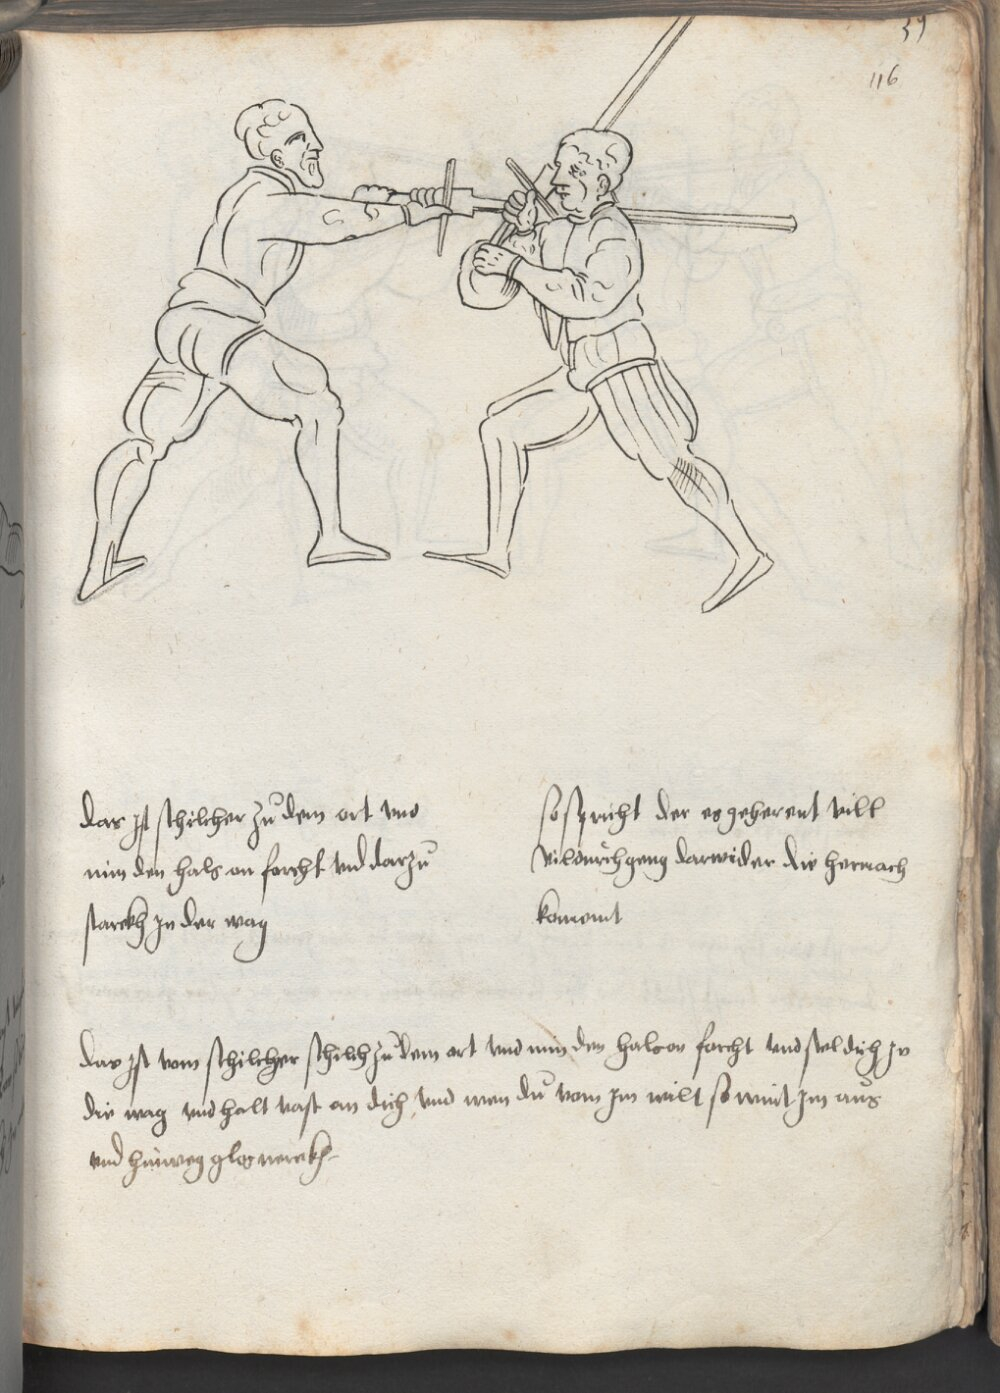 39
116
das ist schilcher zu dem ort vnd
nim den hals on forcht vnd darzu
starckh in der wag
so spricht der es geherent vill
vil durchgeng darwider die hernach
komemt
das ist vom schilcher schilch zu dem ort vnd nim den hals on forcht vnd stel dich in
die wag vnd halt vast an dich vnd wen du vom im wilt so wint im aus
vnd hinweg glos merckh